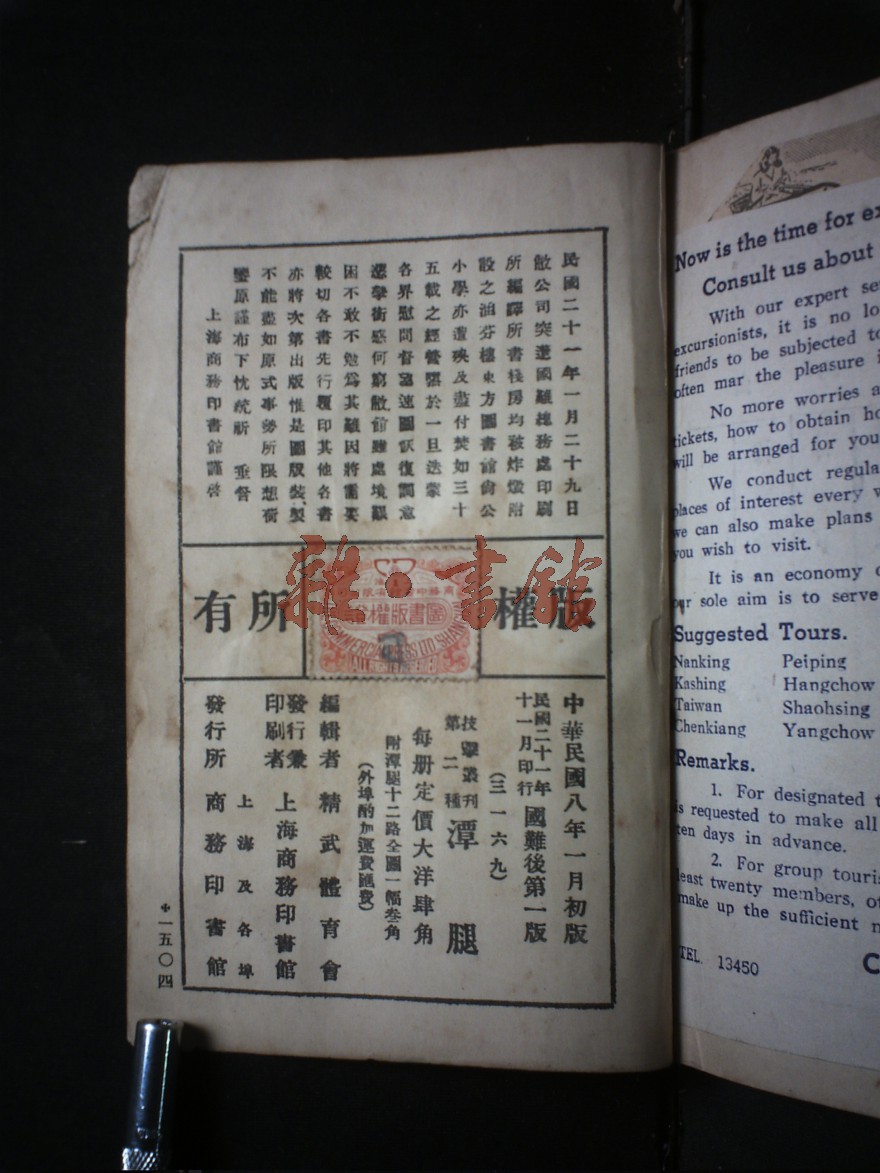 民國二十一年一月二十九日
敝公司突遭國難總務處印刷
所編譯所書棧房均被炸燬附
設之涵芬樓東方圖書館尙公
小學亦遭殃及盡付焚如三十
五載之經營隳於一旦迭蒙
各界慰問督望速圖恢復詞意
懇摯銜感何窮敝館雖處境艱
困不敢不勉爲其難因將需要
較切各書先行覆印其他各書
亦將次第出版惟是圖版裝製
不能盡如原式事勢所限想荷
鑒原謹布下忱統祈 垂詧
上海商務印書館謹啓
版權
所有
雅•書館
圖書版權
中華民國八年一月初版
民國二十一年
十一月印行
國難後第一版
(三一六九)
技擊叢刊
第二種
潭腿
每册定價大洋肆角
附潭腿十二路全圖一幅叁角
(外埠酌加運費匯費)
編輯者 精武體育會
發行兼
印刷者
上海商務印書館
上海及各埠
發行所 商務印書館
一五〇四
Now is the time for
Consult us about
With our expert
excursionists, it is no
friends to be subjected
often mar the pleasure
No more worries
tickets, how to obtain
will be arranged for you
We conduct
places of interest every
we can also make plans
you wish to visit.
It is an economy
our sole aim is to serve
Suggested Tours.
Nanking Peiping
Kashing Hangchow
Taiwan Shaohsing
Chenkiang Yangchow
Remarks.
1. For designated
is requested to make all
ten days in advance.
2. For group
least twenty members,
make up the sufficient
TEL. 13450